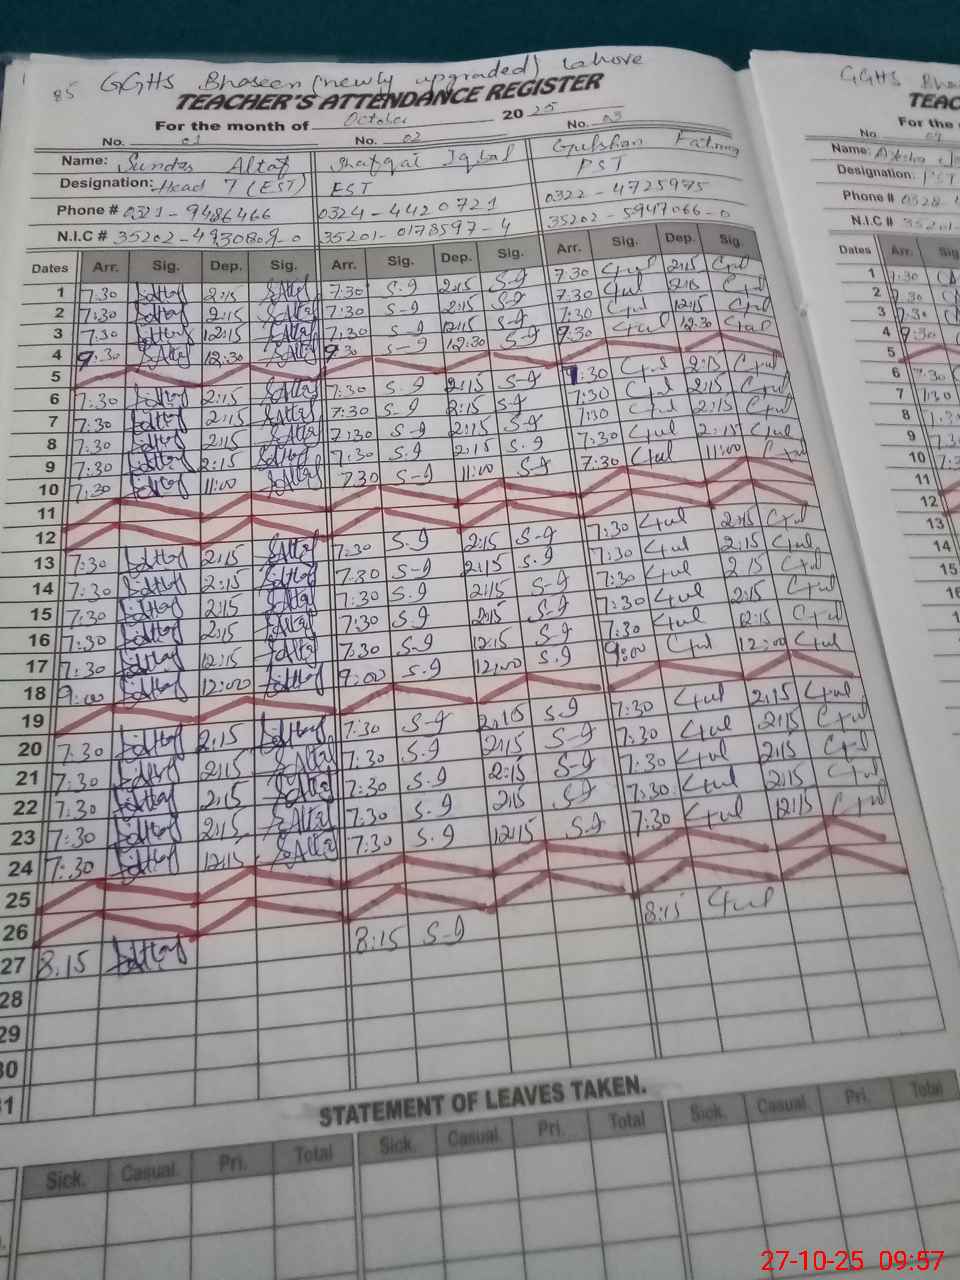 85 GGHS Bhaseen (newly upgraded) Lahore
TEACHER'S ATTENDANCE REGISTER
For the month of October 2025
No. 01 No. 02 No. 03
Name: Sundas Altaf Shafqat Iqbal Gulshan Fatima
Designation: Head T (EST) EST PST
Phone # 0321-9486466 0324-4420721 0322-4725975
N.I.C # 35202- 35201-0178597-4 35202-5947066-0
Dates Arr. Sig. Dep. Sig. Arr. Sig. Dep. Sig. Arr. Sig. Dep. Sig.
1 7:30 SAltaf 2:15 SAltaf 7:30 S-I 2:15 S-I 7:30 Gul 2:15 Gul
2 7:30 SAltaf 2:15 SAltaf 7:30 S-I 2:15 S-I 7:30 Gul 2:15 Gul
3 7:30 SAltaf 12:15 SAltaf 7:30 S-I 12:15 S-I 7:30 Gul 12:15 Gul
4 9:30 SAltaf 12:30 SAltaf 9:30 S-I 12:30 S-I 9:30 Gul 12:30 Gul
5
6 7:30 SAltaf 2:15 SAltaf 7:30 S-I 2:15 S-I 7:30 Gul 2:15 Gul
7 7:30 SAltaf 2:15 SAltaf 7:30 S-I 2:15 S-I 7:30 Gul 2:15 Gul
8 7:30 SAltaf 2:15 SAltaf 7:30 S-I 2:15 S-I 7:30 Gul 2:15 Gul
9 7:30 SAltaf 2:15 SAltaf 7:30 S-I 2:15 S-I 7:30 Gul 2:15 Gul
10 7:30 SAltaf 11:00 SAltaf 7:30 S-I 11:00 S-I 7:30 Gul 11:00 Gul
11
12
13 7:30 SAltaf 2:15 SAltaf 7:30 S-I 2:15 S-I 7:30 Gul 2:15 Gul
14 7:30 SAltaf 2:15 SAltaf 7:30 S-I 2:15 S-I 7:30 Gul 2:15 Gul
15 7:30 SAltaf 2:15 SAltaf 7:30 S-I 2:15 S-I 7:30 Gul 2:15 Gul
16 7:30 SAltaf 2:15 SAltaf 7:30 S-I 2:15 S-I 7:30 Gul 2:15 Gul
17 7:30 SAltaf 12:15 SAltaf 7:30 S-I 12:15 S-I 7:30 Gul 12:15 Gul
18 9:00 SAltaf 12:00 SAltaf 9:00 S-I 12:00 S-I 9:00 Gul 12:00 Gul
19
20 7:30 SAltaf 2:15 SAltaf 7:30 S-I 2:15 S-I 7:30 Gul 2:15 Gul
21 7:30 SAltaf 2:15 SAltaf 7:30 S-I 2:15 S-I 7:30 Gul 2:15 Gul
22 7:30 SAltaf 2:15 SAltaf 7:30 S-I 2:15 S-I 7:30 Gul 2:15 Gul
23 7:30 SAltaf 2:15 SAltaf 7:30 S-I 2:15 S-I 7:30 Gul 2:15 Gul
24 7:30 SAltaf 12:15 SAltaf 7:30 S-I 12:15 S-I 7:30 Gul 12:15 Gul
25
26
27 8:15 SAltaf 8:15 S-I 8:15 Gul
28
29
30
31
STATEMENT OF LEAVES TAKEN.
Sick. Casual Pri. Total Sick. Casual Pri. Total Sick. Casual Pri. Total
GGHS
TEAC
For the
No.
Name:
Designation:
Phone # 0328
N.I.C #
Dates Arr.
1 7:30
2 7:30
3 7:30
4 9:30
5
6 7:30
7 7:30
8
9
10
11
12
13
14
15
27-10-25 09:57